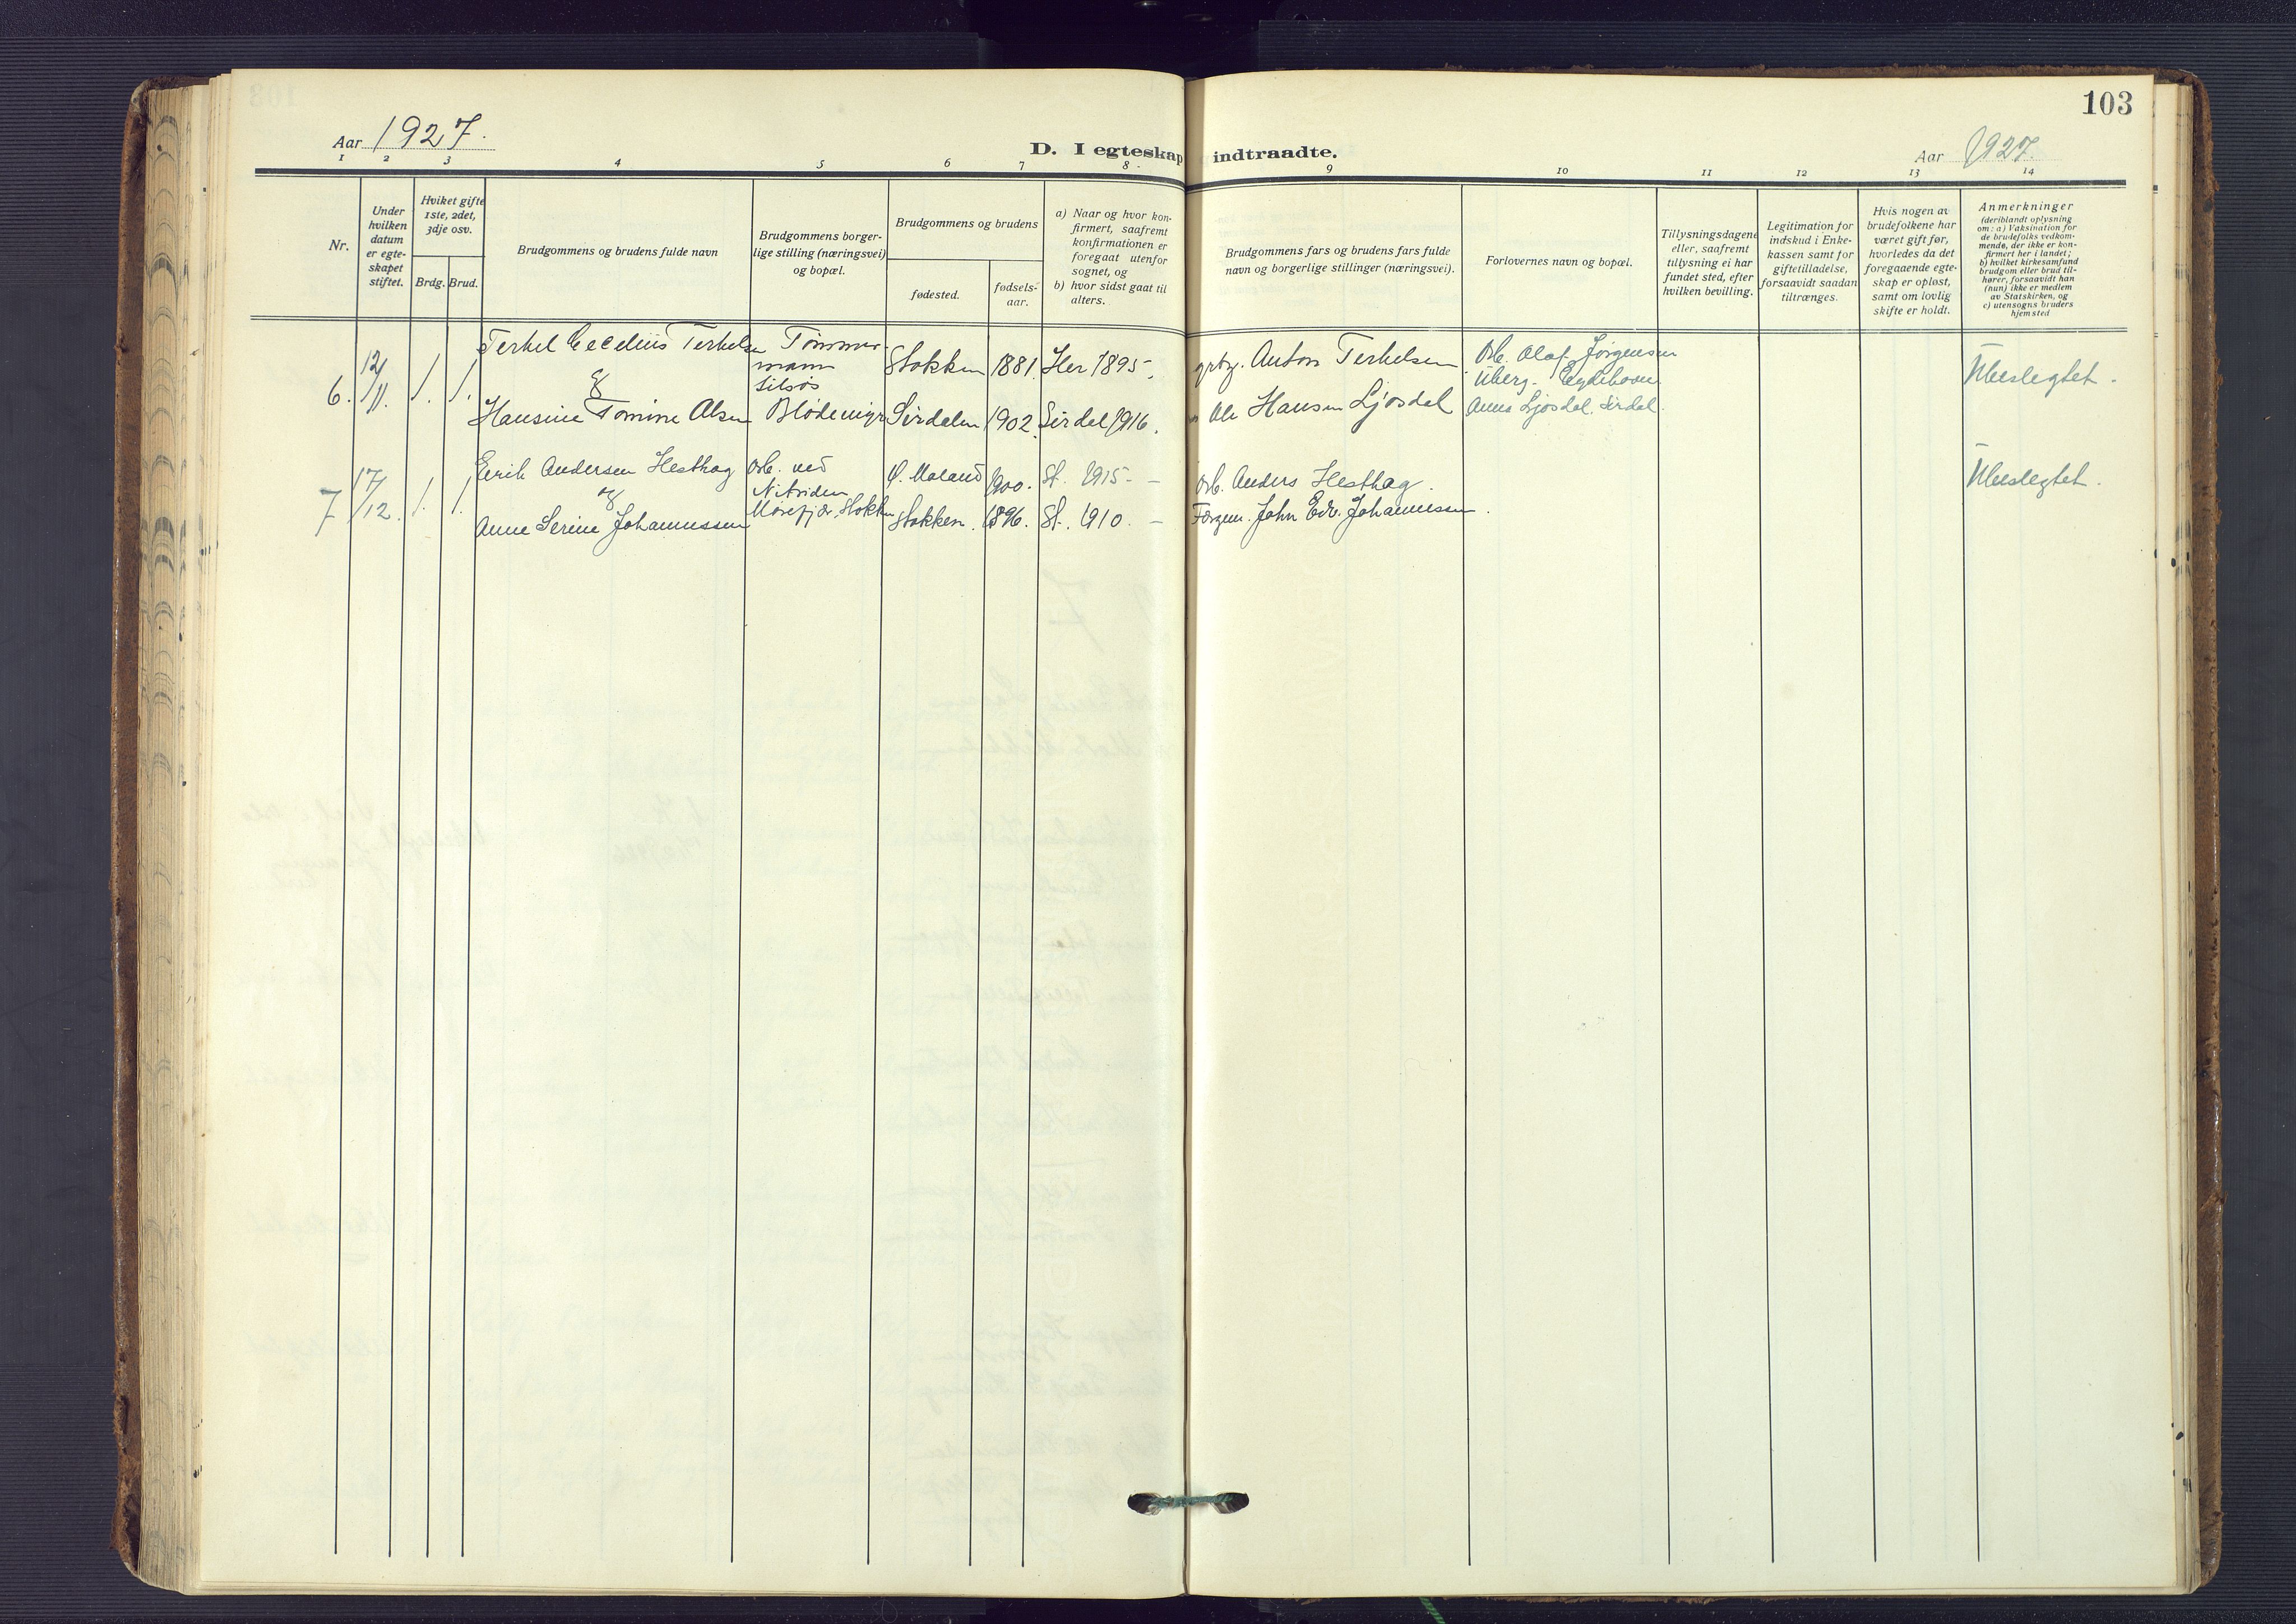 103
Aar 1927.
D. I egteskap indtraadte.
Aar 1927.
1 2 3 4 5 6 7 8 9 10 11 12 13 14
Nr.
Under
hvilken
datum
er egte-
skapet
stiftet.
Hviket gifte
1ste, 2det,
3dje osv.
Brdg. Brud.
Brudgommens og brudens fulde navn
Brudgommens borger-
lige stilling (næringsvei)
og bopæl.
Brudgommens og brudens
fødested.
fødsels-
aar.
a) Naar og hvor kon-
firmert, saafremt
konfirmationen er
foregaat utenfor
sognet, og
b) hvor sidst gaat til
alters.
Brudgommens fars og brudens fars fulde
navn og borgerlige stillinger (næringsvei).
Forlovernes navn og bopæl.
Tillysningsdagene
eller, saafremt
tillysning ei har
fundet sted, efter
hvilken bevilling.
Legitimation for
indskud i Enke-
kassen samt for
giftetilladelse,
forsaavidt saadan
tiltrænges.
Hvis nogen av
brudefolkene har
været gift før,
hvorledes da det
foregaaende egte-
skap er opløst,
samt om lovlig
skifte er holdt.
Anmerkninger
(deriblandt oplysning
om: a) Vaksination for
de brudefolks vedkom-
mende, der ikke er kon-
firmert her i landet;
b) hvilket kirkesamfund
brudgom eller brud til-
hører, forsaavidt han
(hun) ikke er medlem
av Statskirken, og
c) utensogns bruders
hjemsted
6. 12/11. 1. 1.
Terkel Cecelius Terkelsen
&
Hansine Tomine Olsen
Tømmer-
mann
Stokken 1881. Her 1895.
Sirdalen 1902. Sirdal 1916.
Anton Terkelsen
Ole Hansen Ljosdal
Olaf Jörgensen
Anna Ljosdal. Sirdal.
Ubeslegtet.
7 17/12. 1. 1.
Eerik Andersen Hesthag
&
Anne Serine Johannessen
Arb. ved
Nitriden
Mørefjær, Stokken
Ø. Moland 1900. St. 1915. -
Stokken. 1896. St. 1910. -
Arb. Anders Hesthag.
John Edv. Johannessen.
Ubeslegtet.